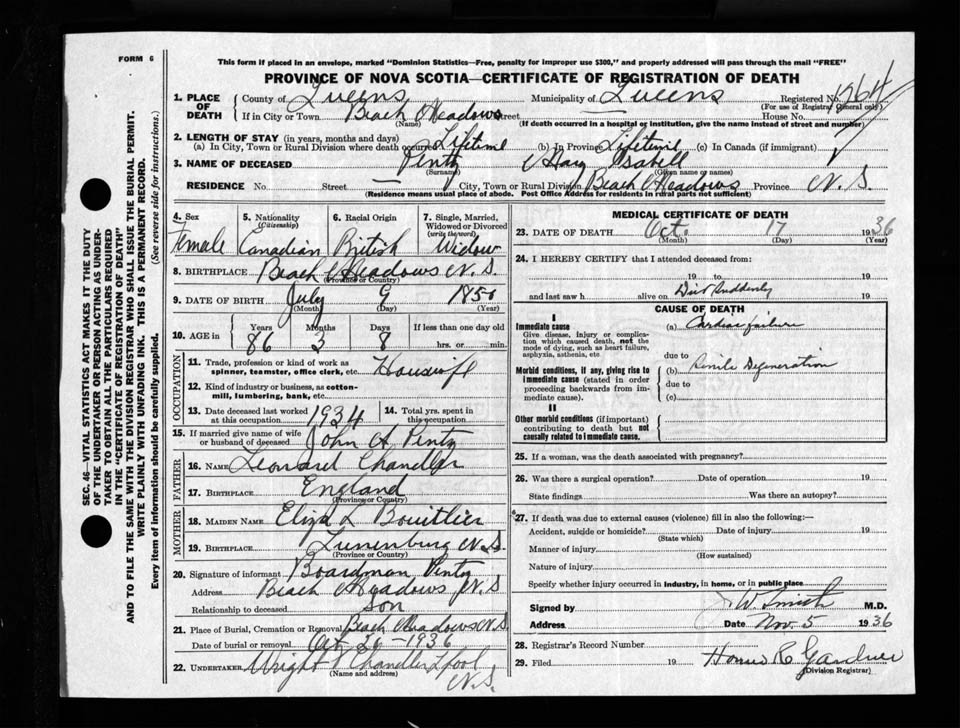 FORM 6
This form if placed in an envelope, marked "Dominion Statistics—Free, penalty for improper use $300," and properly addressed will pass through the mail "FREE"
PROVINCE OF NOVA SCOTIA—CERTIFICATE OF REGISTRATION OF DEATH
1. PLACE OF DEATH
County of Queens Municipality of Queens Registered No. 1964
(For use of Registrar General only)
If in City or Town Beach Meadows Street House No.
(Name) (If death occurred in a hospital or institution, give the name instead of street and number)
2. LENGTH OF STAY (in years, months and days)
(a) In City, Town or Rural Division where death occurred Lifetime (b) In Province Lifetime (c) In Canada (if immigrant)
3. NAME OF DECEASED Pentz Mary Isabell
(Surname) (Given name or names)
RESIDENCE No. Street City, Town or Rural Division Beach Meadows Province N.S.
(Residence means usual place of abode. Post Office Address for residents in rural parts not sufficient)
4. Sex Female
5. Nationality (Citizenship) Canadian
6. Racial Origin British
7. Single, Married, Widowed or Divorced (write the word) Widow
8. BIRTHPLACE Beach Meadows N.S.
(Province or Country)
9. DATE OF BIRTH July 9 1850
(Month) (Day) (Year)
10. AGE in Years 86 Months 3 Days 8 If less than one day old hrs. or min.
OCCUPATION
11. Trade, profession or kind of work as spinner, teamster, office clerk, etc. Housewife
12. Kind of industry or business, as cotton-mill, lumbering, bank, etc.
13. Date deceased last worked at this occupation 1934
14. Total yrs. spent in this occupation
15. If married give name of wife or husband of deceased John A Pentz
FATHER
16. NAME Leonard Chandler
17. BIRTHPLACE England
(Province or Country)
MOTHER
18. MAIDEN NAME Eliza L Bouitlier
19. BIRTHPLACE Lunenburg N.S.
(Province or Country)
20. Signature of informant Boardman Pentz
Address Beach Meadows N.S
Relationship to deceased Son
21. Place of Burial, Cremation or Removal Beach Meadows N.S.
Date of burial or removal Oct 20 - 1936
22. UNDERTAKER Wright Chandler L'pool N.S.
(Name and address)
MEDICAL CERTIFICATE OF DEATH
23. DATE OF DEATH Oct. 17 1936
(Month) (Day) (Year)
24. I HEREBY CERTIFY that I attended deceased from:
19 to 19
and last saw h alive on Died Suddenly 19
CAUSE OF DEATH
I
Immediate cause (a) Cardiac failure
Give disease, injury or complication which caused death, not the mode of dying, such as heart failure, asphyxia, asthenia, etc
due to
Morbid conditions, if any, giving rise to immediate cause (stated in order proceeding backwards from immediate cause).
(b) Senile Degeneration
due to
(c)
II
Other morbid conditions (if important) contributing to death but not causally related to immediate cause.
25. If a woman, was the death associated with pregnancy?
26. Was there a surgical operation? Date of operation 19
State findings Was there an autopsy?
27. If death was due to external causes (violence) fill in also the following:—
Accident, suicide or homicide? Date of injury 19
(State which)
Manner of injury
(How sustained)
Nature of injury
Specify whether injury occurred in industry, in home, or in public place
Signed by J W Smith M.D.
Address Date Nov. 5 1936
28. Registrar's Record Number
29. Filed 19 Homer R Gardner
(Division Registrar)
SEC. 46—VITAL STATISTICS ACT MAKES IT THE DUTY
OF THE UNDERTAKER OR PERSON ACTING AS UNDER-
TAKER TO OBTAIN ALL THE PARTICULARS REQUIRED
IN THE "CERTIFICATE OF REGISTRATION OF DEATH"
AND TO FILE THE SAME WITH THE DIVISION REGISTRAR WHO SHALL ISSUE THE BURIAL PERMIT.
WRITE PLAINLY WITH UNFADING INK. THIS IS A PERMANENT RECORD.
Every item of information should be carefully supplied. (See reverse side for instructions.)